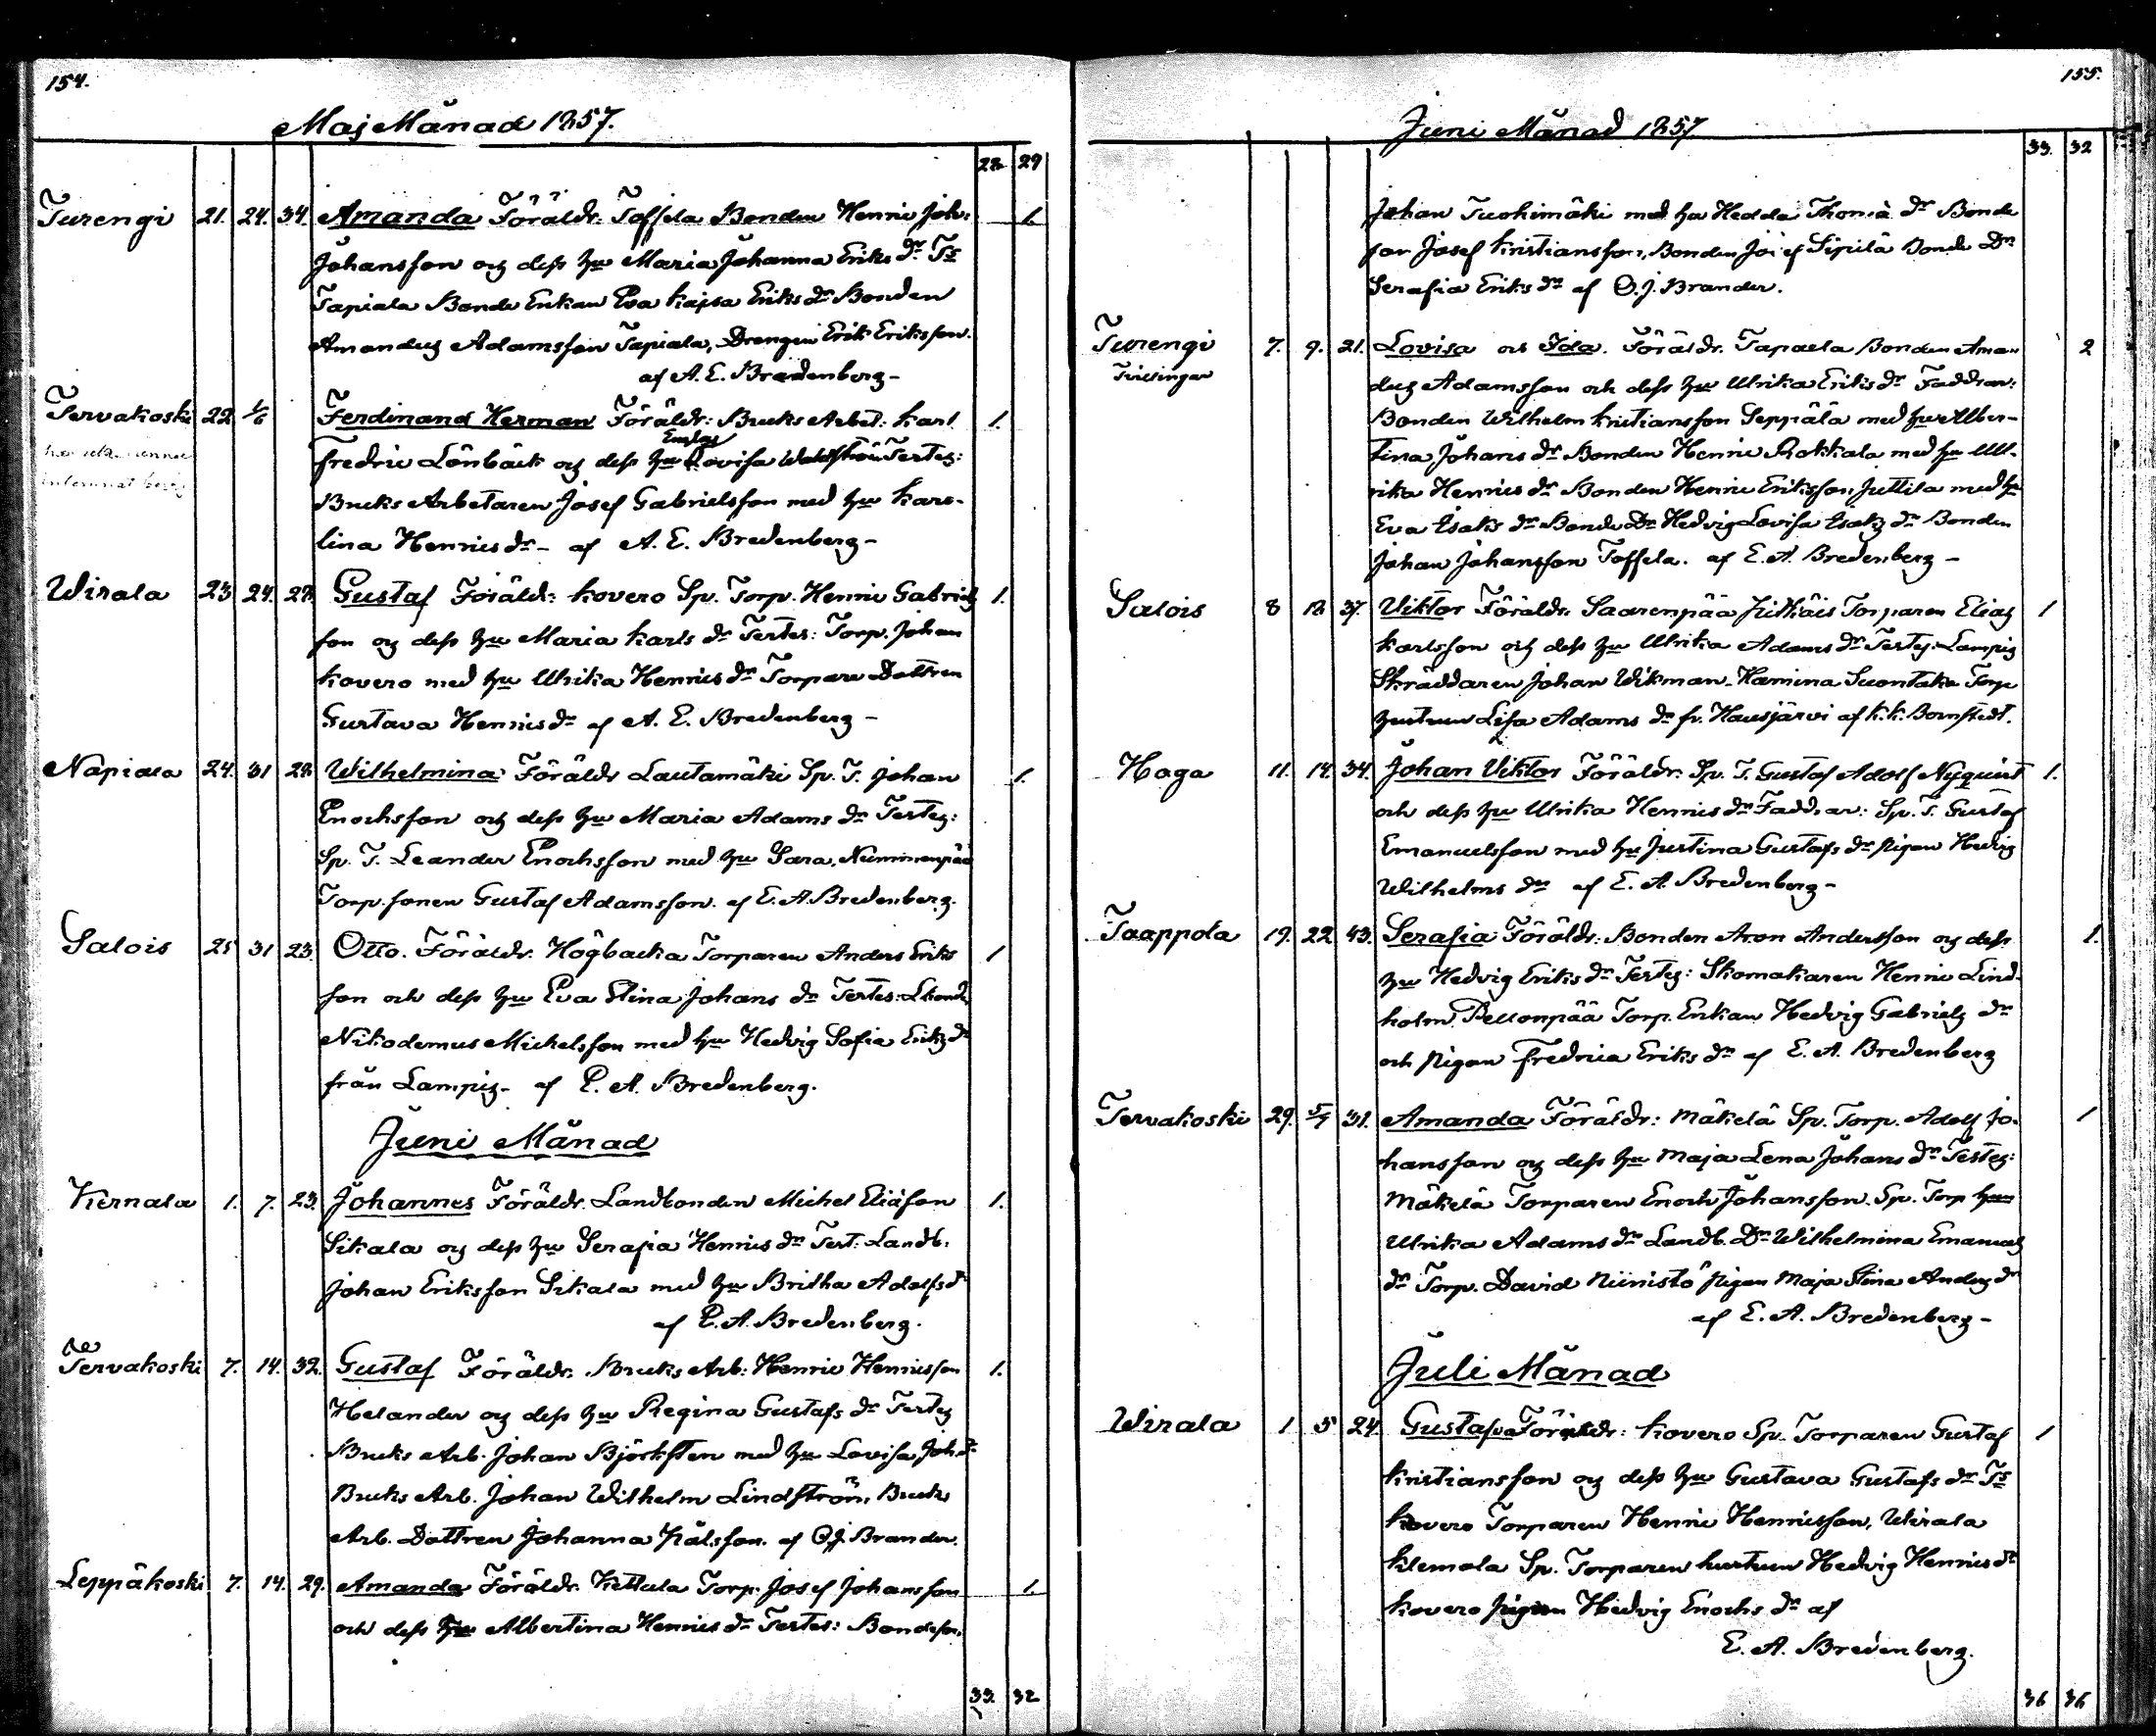 154.
Maj Månad 1857.
28 29
Turengi 21. 24. 34. Amanda Föräldr: Toffela Bonden Henric Joh: 1.
Johansson og dess hu Maria Johanna Eriks dr Ts
Tapiala Bonde Enkan Eva Kajsa Eriks dr Bonden
Amandus Adamsson Tapiala, Drengen Erik Eriksson.
af A. E. Bredenberg-
Tervakoski 22 1/6 Ferdinand Herman Föräldr: Bruks Arbet: Karl 1.
Fredric Lönbäck og dess hu Lovisa Testes:
Bruks Arbetaren Josef Gabrielsson med hu Karo-
lina Henrics dr- af A. E. Bredenberg-
Wirala 23 24. 28. Gustaf Föräldr: Kovero Sp. Torp. Henric Gabriels 1.
son og dess hu Maria Karls dr Testes: Torp. Johan
Kovero med hu Ulrika Henrics dr Torpare Dottren
Gustava Henrics dr af A. E. Bredenberg-
Näpiala 24. 31 28 Wilhelmina Föräldr Lautamäki Sp. T. Johan 1.
Enochsson og dess hu Maria Adams dr Testes:
Sp. T. Leander Enochsson med hu Sara, Numminenpää
Torp. sonen Gustaf Adamsson. af E. A. Bredenberg.
Salois 25 31 23. Otto. Föräldr: Högbacka Torparen Anders Eriks 1
son och dess hu Eva Stina Johans dr Testes:
Nikodemus Michelsson med hu Hedvig Sofia Eriks dr
från Lampis- af E. A. Bredenberg.
Juni Månad
Kernala 1. 7. 23. Johannes Föräldr. Landbonden Michel Eliäson 1.
Sikala og dess hu Serafia Henrics dr Test: Landb.
Johan Eriksson Sikala med hu Britha Adolfs dr
af E. A. Bredenberg.
Tervakoski 7. 14. 32. Gustaf Föräldr. Bruks Arb: Henric Henricsson 1.
Helander og dess hu Regina Gustafs dr Testes
Bruks Arb. Johan Björksten med hu Lovisa Joh. dr
Bruks Arb. Johan Wilhelm Lindström, Bruks
Arb. Dottren Johanna Pålsson. af O. J. Brander.
Leppäkoski 7. 14. 29. Amanda Föräldr. Kettula Torp. Josef Johansson 1.
och dess hu Albertina Henrics dr Testes: Bondeson.
33. 32
155.
Juni Månad 1857
33. 32
Johan Tuohimäki med hu Hedda Thomä dr Bonde
son Josef Kristiansson, Bonden Josef Sipilä Bonde Dr
Serafia Eriks dr af O. J. Brander.
Turengi 7. 9. 21. Lovisa och Ida. Föräldr. Tapaela Bonden Aman 2
Tvillingar dus Adamsson och dess hu Ulrika Eriks dr Faddrar:
Bonden Wilhelm Kristiansson Seppälä med hu Alber-
tina Johans dr Bonden Henric Rokkala med hu Ull-
rika Henrics dr Bonden Henric Eriksson Juttila med hu
Eva Esaks dr Bonde Dr Hedvig Lovisa Esaks dr Bonden
Johan Johansson Toffela. af E. A. Bredenberg-
Salois 8 12 37. Viktor Föräldr. Saarenpää Torparen Elias 1
Karlsson och dess hu Ulrika Adams dr Testes: Lampis
Skräddaren Johan Wikman. Torp
hustrun Lisa Adams dr fr. Hausjärvi af K. K. Bornstedt.
Haga 11. 14. 34. Johan Viktor Föräldr. Sp. T. Gustaf Adolf Nyquist 1.
och dess hu Ulrika Henrics dr Faddrar: Sp. T. Gustaf
Emanuelsson med hu Justina Gustafs dr pigan Hedvig
Wilhelms dr af E. A. Bredenberg-
Taappola 19. 22 43. Serafia Föräldr: Bonden Aron Andersson og dess 1.
hu Hedvig Eriks dr Testes: Skomakaren Henric Lind-
holm Pellonpää Torp. Enkan Hedvig Gabriels dr
och Pigan Fredrica Eriks dr af E. A. Bredenberg
Tervakoski 29. 5/7 31. Amanda Föräldr: Mäkelä Sp. Torp. Adolf Jo- 1
hansson og dess hu Maja Lena Johans dr Testes:
Mäkelä Torparen Enoch Johansson. Sp. Torp hun
Ulrika Adams dr Landb. Dr Wilhelmina Emanuels
dr Torp. David Niinistö Pigan Maja Stina Anders dr
af E. A. Bredenberg-
Juli Månad
Wirala 1 5 24. Gustaf Föräldr: Kovero Sp. Torparen Gustaf 1
Kristiansson og dess hu Gustava Gustafs dr Ts
Kovero Torparen Henric Henricsson, Wirala
Klemola Sp. Torparen hustrun Hedvig Henrics dr
Kovero pigan Hedvig Enochs dr af
E. A. Bredenberg.
36 36